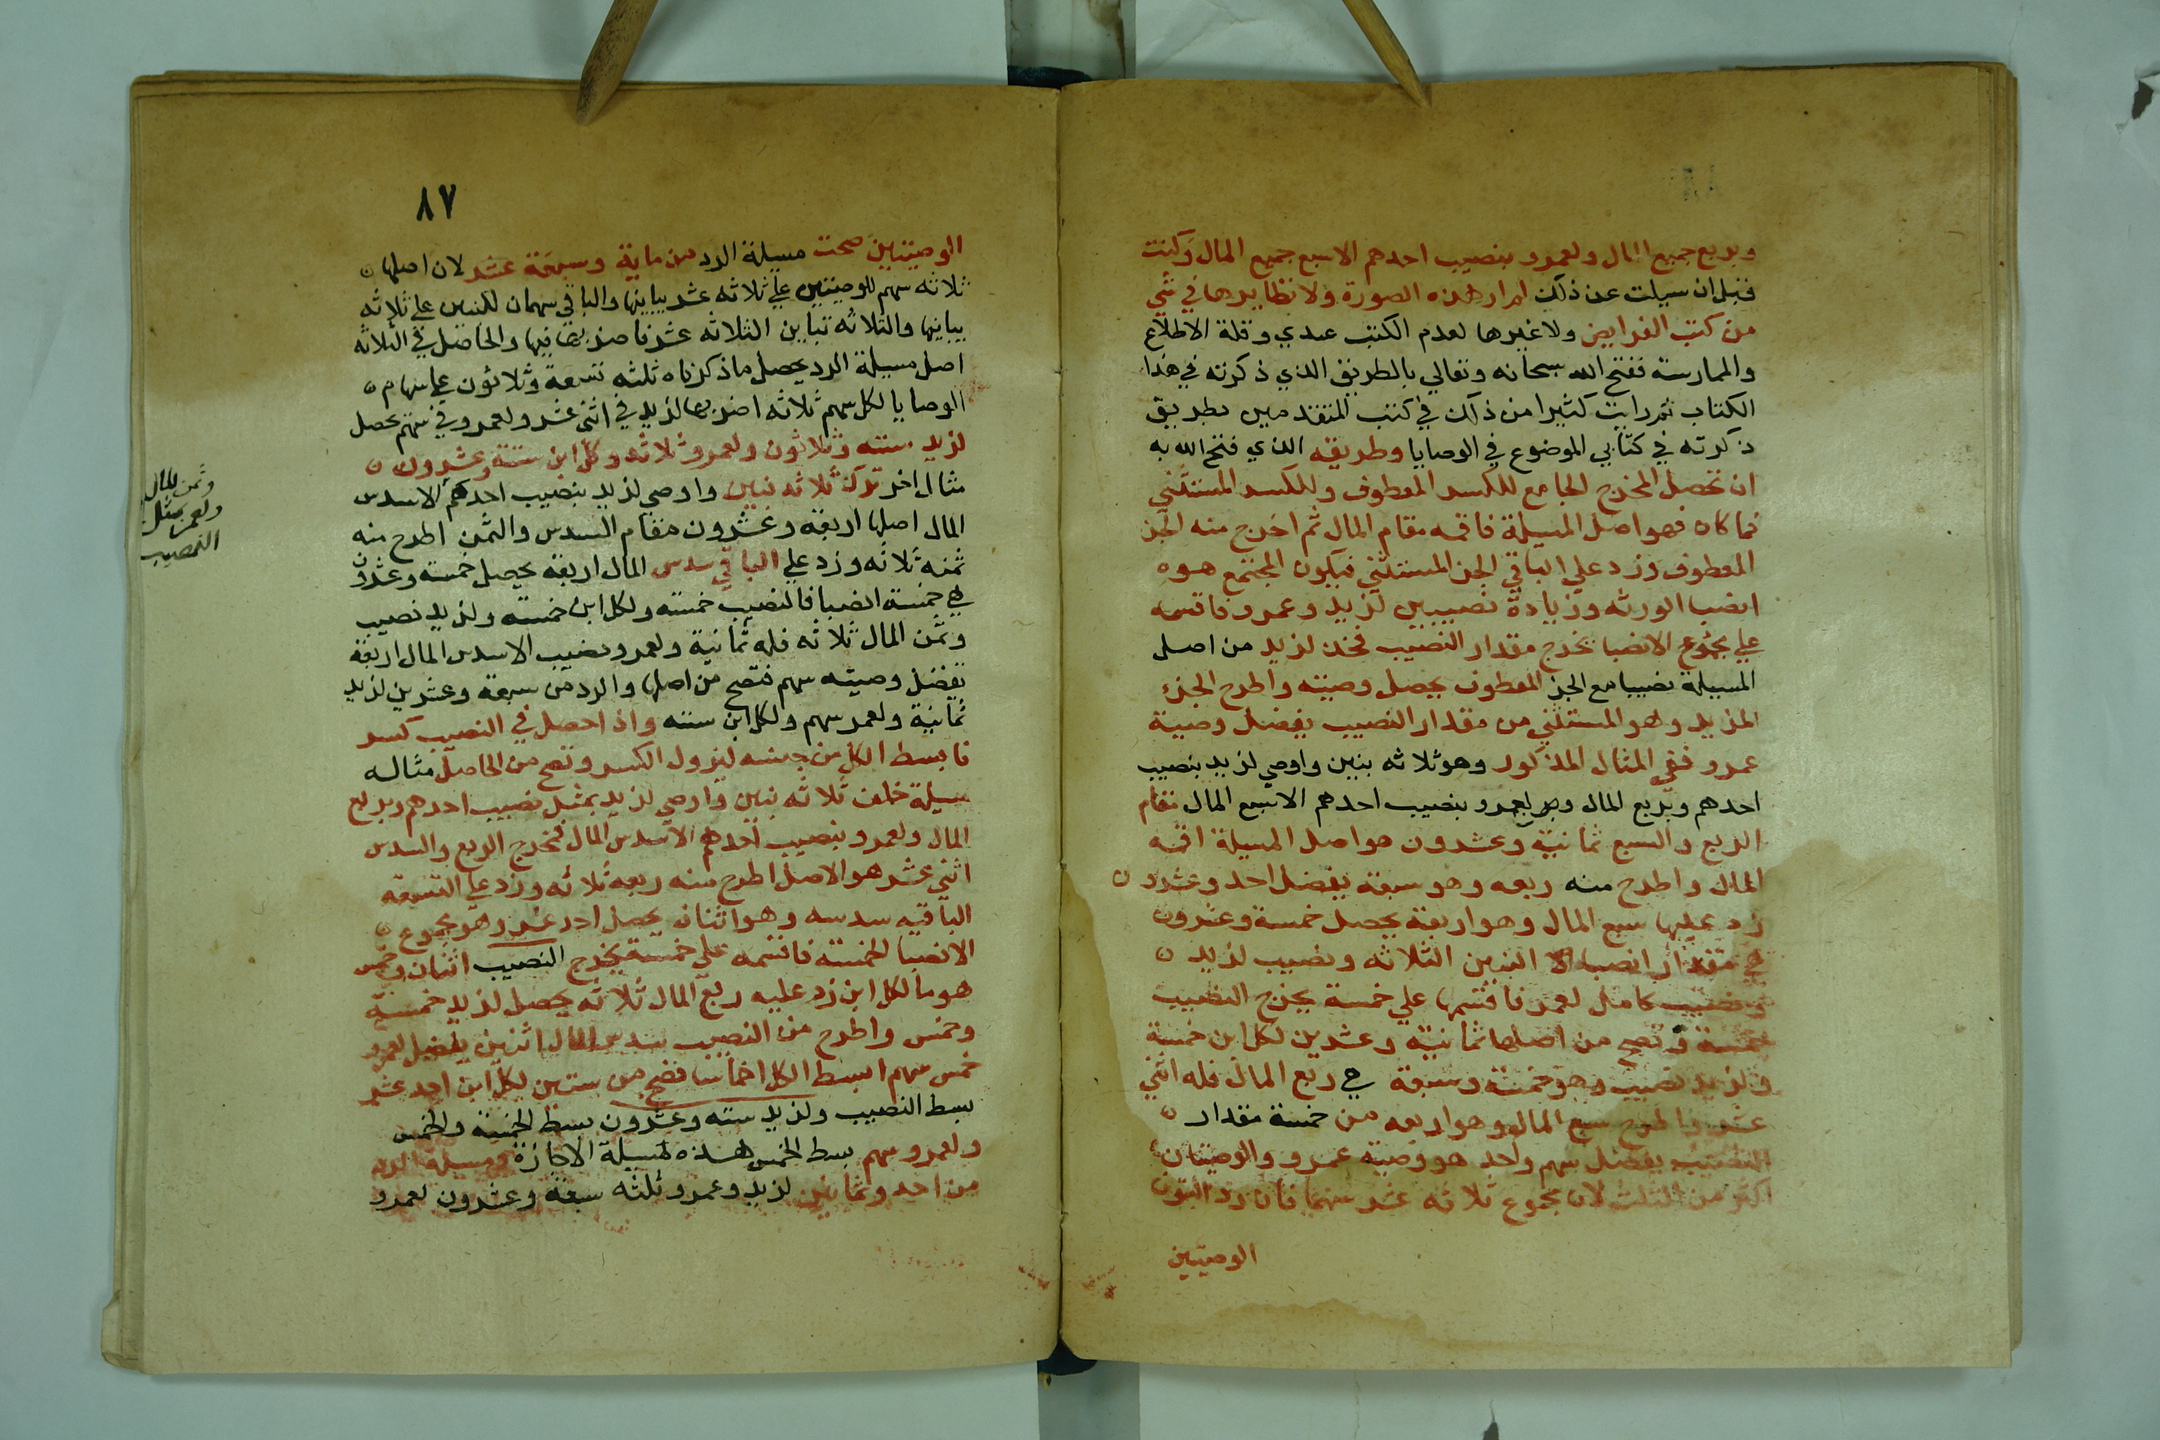 وبربع جميع المال ولعمرو بنصيب احدهم الا سبع جميع المال وكنت
قبل ان سيلت عن ذلك لم ار هذه الصورة ولا نظايرها في شي
من كتب الفرايض ولا غيرها لعدم الكتب عندي وقلة الاطلاع
والممارسة ففتح الله سبحانه وتعالي بالطريق الذي ذكرته في هذا
الكتاب ثم رايت كثيرا من ذلك في كتب المتقدمين بطريق
ذكرته في كتابي الموضوع في الوصايا وطريقه الذي فتح الله به
ان تحصل المخرج الجامع للكسر المعطوف وللكسر المستثني
فما كان فهو اصل المسيلة فاقمه مقام المال ثم اخرج منه الجز
المعطوف وزد علي الباقي الجز المستثني فيكون المجتمع هو
انصبا الورثه وزيادة نصيبين لزيد وعمرو فاقسمه
علي مجموع الانصبا يخرج مقدار النصيب فخذ لزيد من اصل
المسيلة نصيبا مع الجز المعطوف يحصل وصيته واطرح الجزء
المزيد وهو المستثني من مقدار النصيب يفضل وصية
عمرو ففي المثال المذكور وهو ثلاثه بنين واوصي لزيد بنصيب
احدهم وبربع المال ولعمرو بنصيب احدهم الا سبع المال مقام
الربع والسبع ثمانية وعشرون هو اصل المسيلة اقمه
المال واطرح منه ربعه وهو سبعة يفضل احد وعشرون
زد عليها سبع المال وهو اربعة يحصل خمسة وعشرون
هي مقدار انصبا البنين الثلاثه ونصيب لزيد
ونصيب كامل لعمرو فاقسمها علي خمسة يخرج النصيب
خمسة وتصح من اصلها ثمانية وعشرين لكل ابن خمسة
ولزيد نصيب وهو خمسة وسبعة هي ربع المال فله اثني
عشر واطرح سبع المال وهو اربعه من خمسة مقدار
النصيب يفضل سهم واحد هو وصية عمرو والوصيتان
اكثر من الثلث لان مجموع ثلاثه عشر سهما فان رد البنون
الوصيتين
٨٧
الوصيتين صحت مسيلة الرد من ماية وسبعة عشر لان اصلها
ثلاثه سهم للوصيتين علي ثلاثه عشر يباينها والباقي سهمان للبنين علي ثلاثه
يباينها والثلاثه تباين الثلاثه عشر فاضربها فيها والحاصل في الثلاثه
اصل مسيلة الرد يحصل ما ذكرناه ثلثه تسعة وثلاثون علي سهام
الوصايا لكل سهم ثلاثه اضربها لزيد في اثني عشر ولعمرو في سهم يحصل
لزيد سته وثلاثون ولعمرو ثلاثه وكل ابن ستة وعشرون
مثال اخر ترك ثلاثه بنين واوصي لزيد بنصيب احدهم الا سدس
المال اصلها اربعة وعشرون مقام السدس والثمن اطرح منه
ثمنه ثلاثه وزد علي الباقي سدس المال اربعة يحصل خمسة وعشرون
هي خمسة انصبا فالنصيب خمسه ولكل ابن خمسه ولزيد نصيب
وثمن المال ثلاثه فله ثمانية ولعمرو نصيب الا سدس المال اربعة
يفضل وصيته سهم فتصح من اصلها والرد من سبعة وعشرين لزيد
ثمانية ولعمرو سهم ولكل ابن سته واذا حصل في النصيب كسر
فابسط الكل من جنسه ليزول الكسر وتصح من الحاصل مثاله
مسيلة خلف ثلاثه بنين واوصي لزيد بمثل نصيب احدهم وبربع
المال ولعمرو بنصيب احدهم الا سدس المال فمخرج الربع والسدس
اثني عشر هو الاصل اطرح منه ربعه ثلاثه وزد علي التسعة
الباقيه سدسه وهو اثنان يحصل احد عشر وهو مجموع
الانصبا الخمسة فاقسمه علي خمسة يخرج النصيب اثنان وخمس
هو ما لكل ابن زد عليه ربع المال ثلاثه يحصل لزيد خمسة
وخمس واطرح من النصيب سدس المال اثنين يفضل لعمرو
خمس سهم ابسط الكل اخماسا فتصح من ستين لكل ابن احد عشر
بسط النصيب ولزيد سته وعشرون بسط الخمسة والخمس
ولعمرو سهم بسط الخمس هذه مسيلة الاجازة ومسيلة الرد
من احد وثمانين لزيد وعمرو ثلثه سبعة وعشرون لعمرو
وثمن المال
ولعمرو بمثل
النصيب